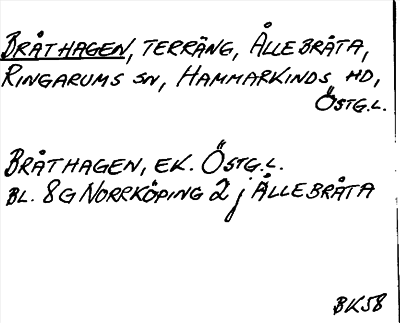 BRÅTHAGEN, TERRÄNG, ÅLLEBRÅTA,
RINGARUMS SN, HAMMARKINDS HD,
ÖSTG.L.
BRÅTHAGEN, EK. ÖSTG.L.
BL. 8G NORRKÖPING 2 j ÅLLEBRÅTA
BK58